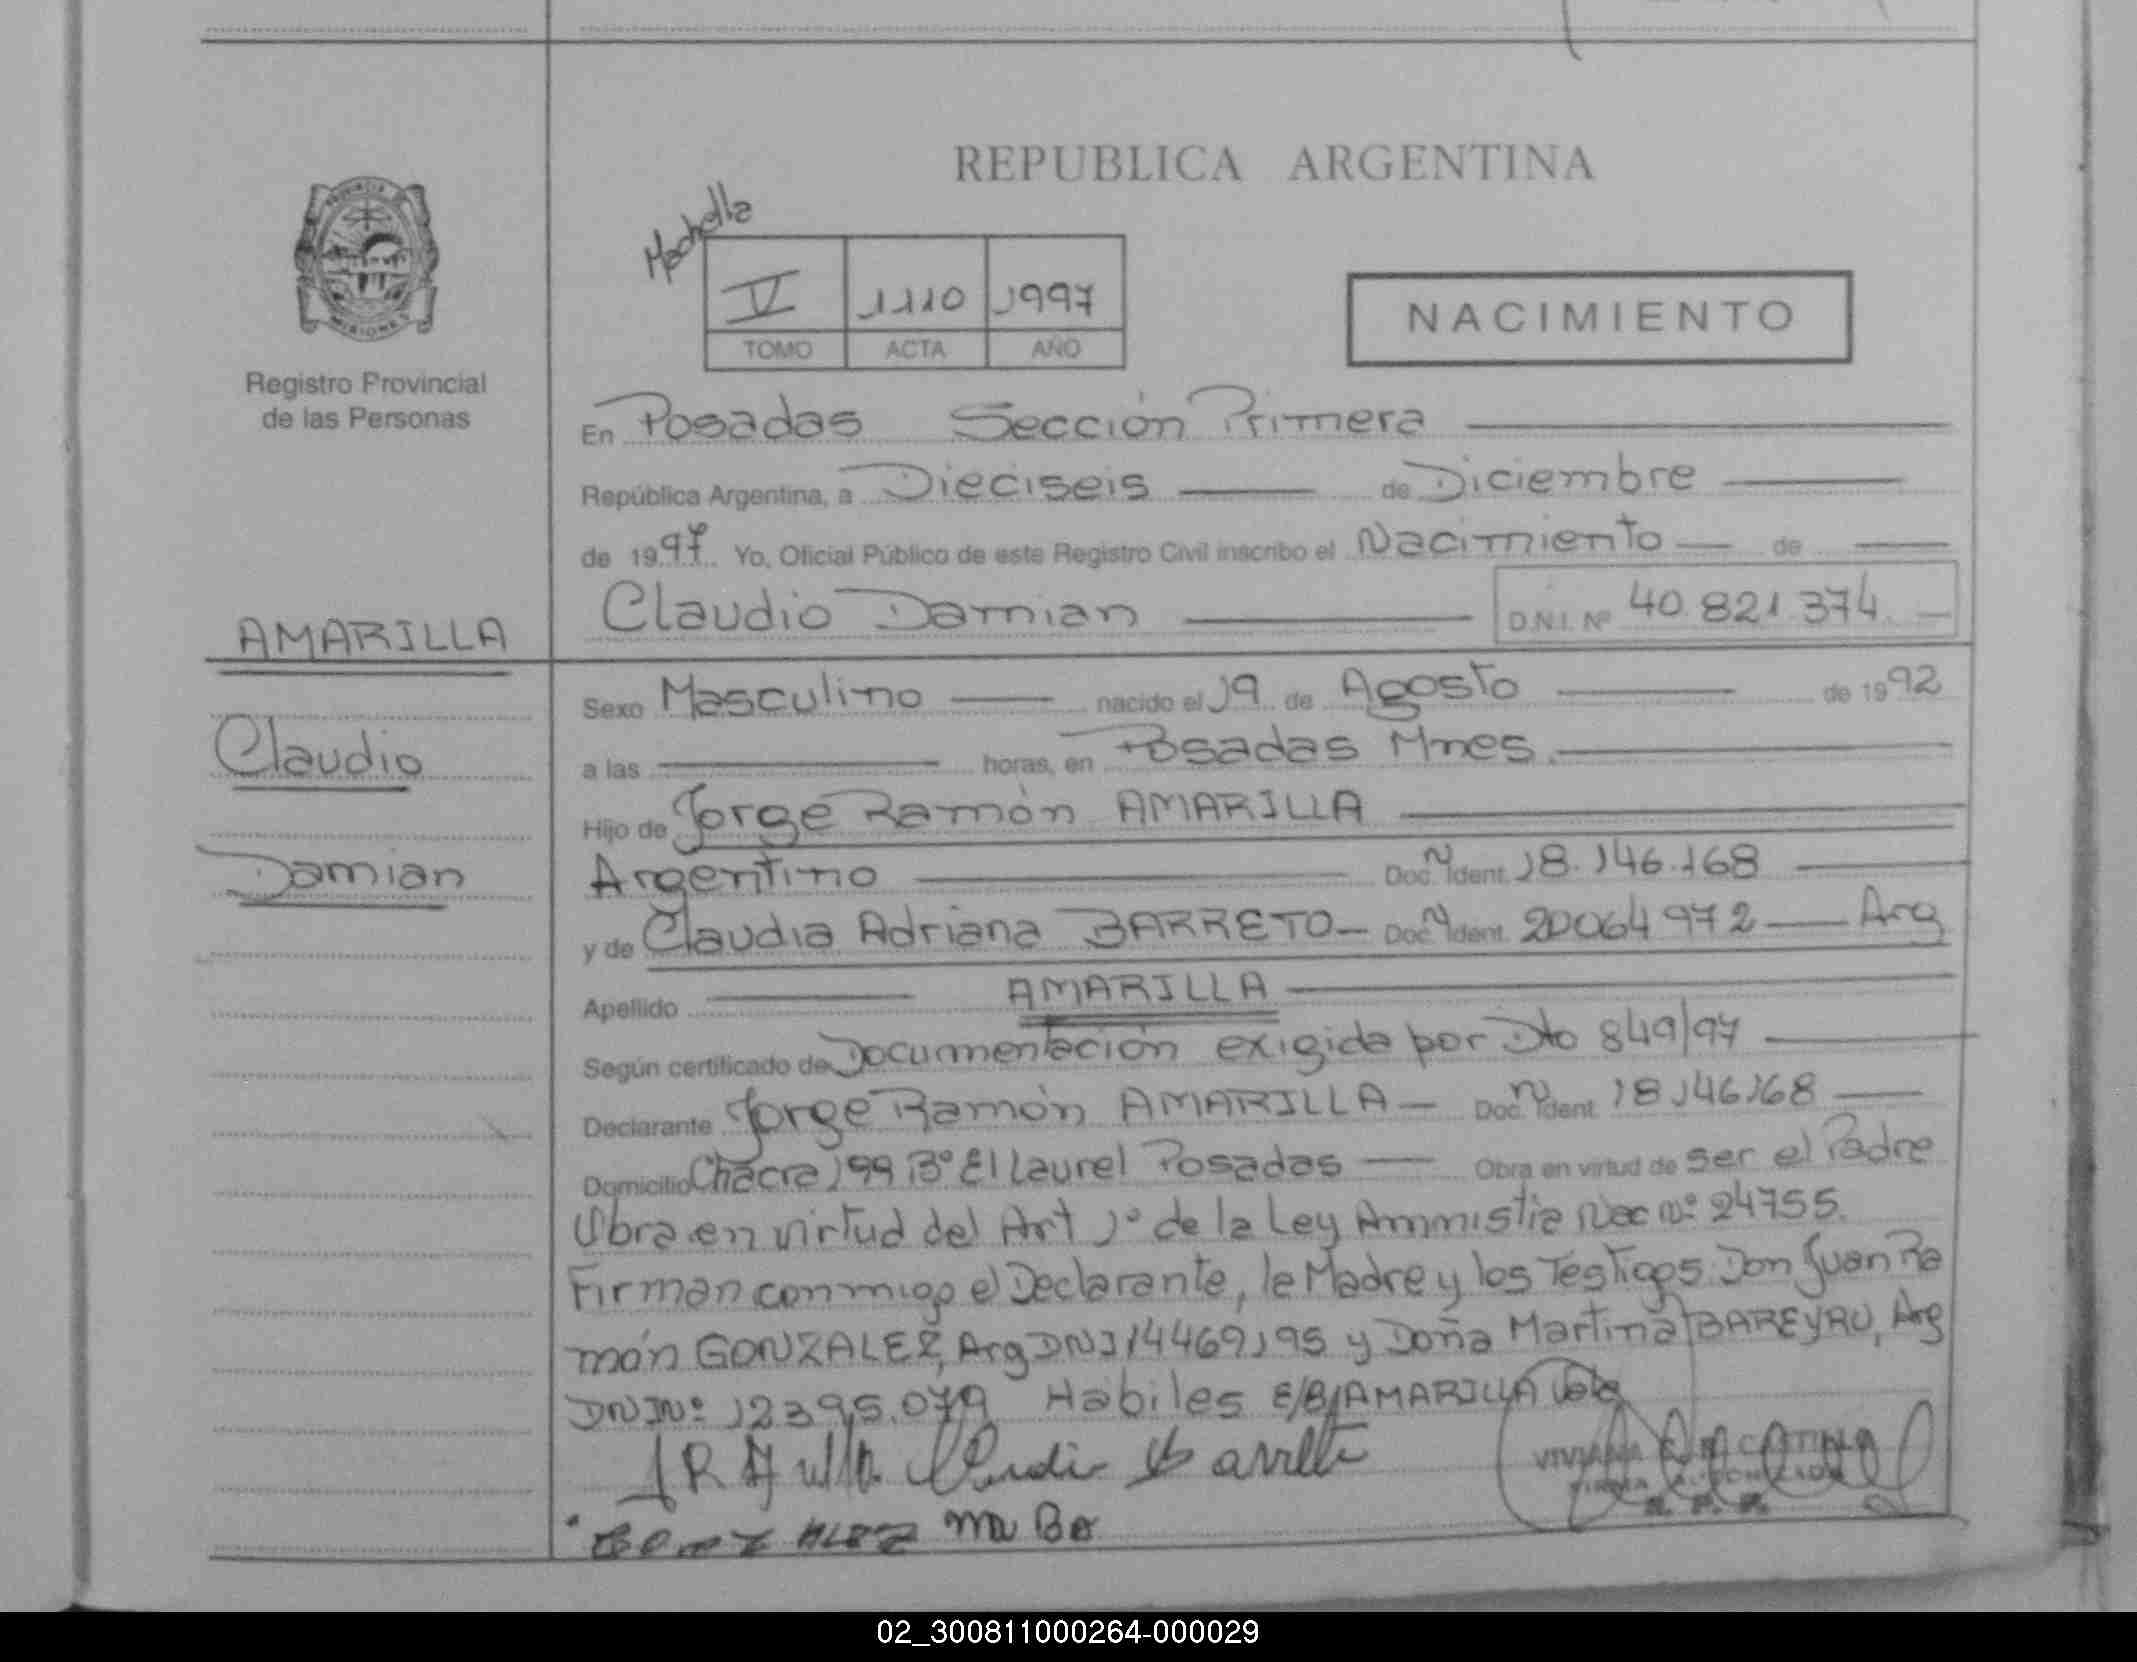 REPUBLICA ARGENTINA
PROVINCIA DE
MISIONES
Registro Provincial
de las Personas
Machella
V 1110 1997
TOMO ACTA AÑO
NACIMIENTO
En Posadas Sección Primera
República Argentina, a Dieciseis de Diciembre
de 1997 Yo, Oficial Público de este Registro Civil inscribo el Nacimiento de
Claudio Damian D.N.I. Nº 40.821.374
AMARILLA
Claudio
Damian
Sexo Masculino nacido el 19 de Agosto de 1992
a las horas, en Posadas Mnes.
Hijo de Jorge Ramón AMARILLA
Argentino Doc. N Ident. 18.146.168
y de Claudia Adriana BARRETO Doc. N Ident. 20064972 Arg
Apellido AMARILLA
Según certificado de Documentación exigida por Dto 849/97
Declarante Jorge Ramón AMARILLA Doc. N Ident. 18146168
Domicilio Chacra 199 Bº El Laurel Posadas Obra en virtud de ser el Padre
Obra en virtud del Art 1º de la Ley Ammistia Nac Nº 24755.
Firman conmigo el Declarante, la Madre y los Testigos Don Juan Ra
món GONZALEZ, Arg DNI 14469195 y Doña Martina BAREYRO, Arg
DNI Nº 12395.079 Habiles E/B/AMARILLA Vale
Claudia Barreto
VIVIANA
FIRMA AUTORIZADA
R. P. P.
GONZALEZ Ma Ba
02_300811000264-000029